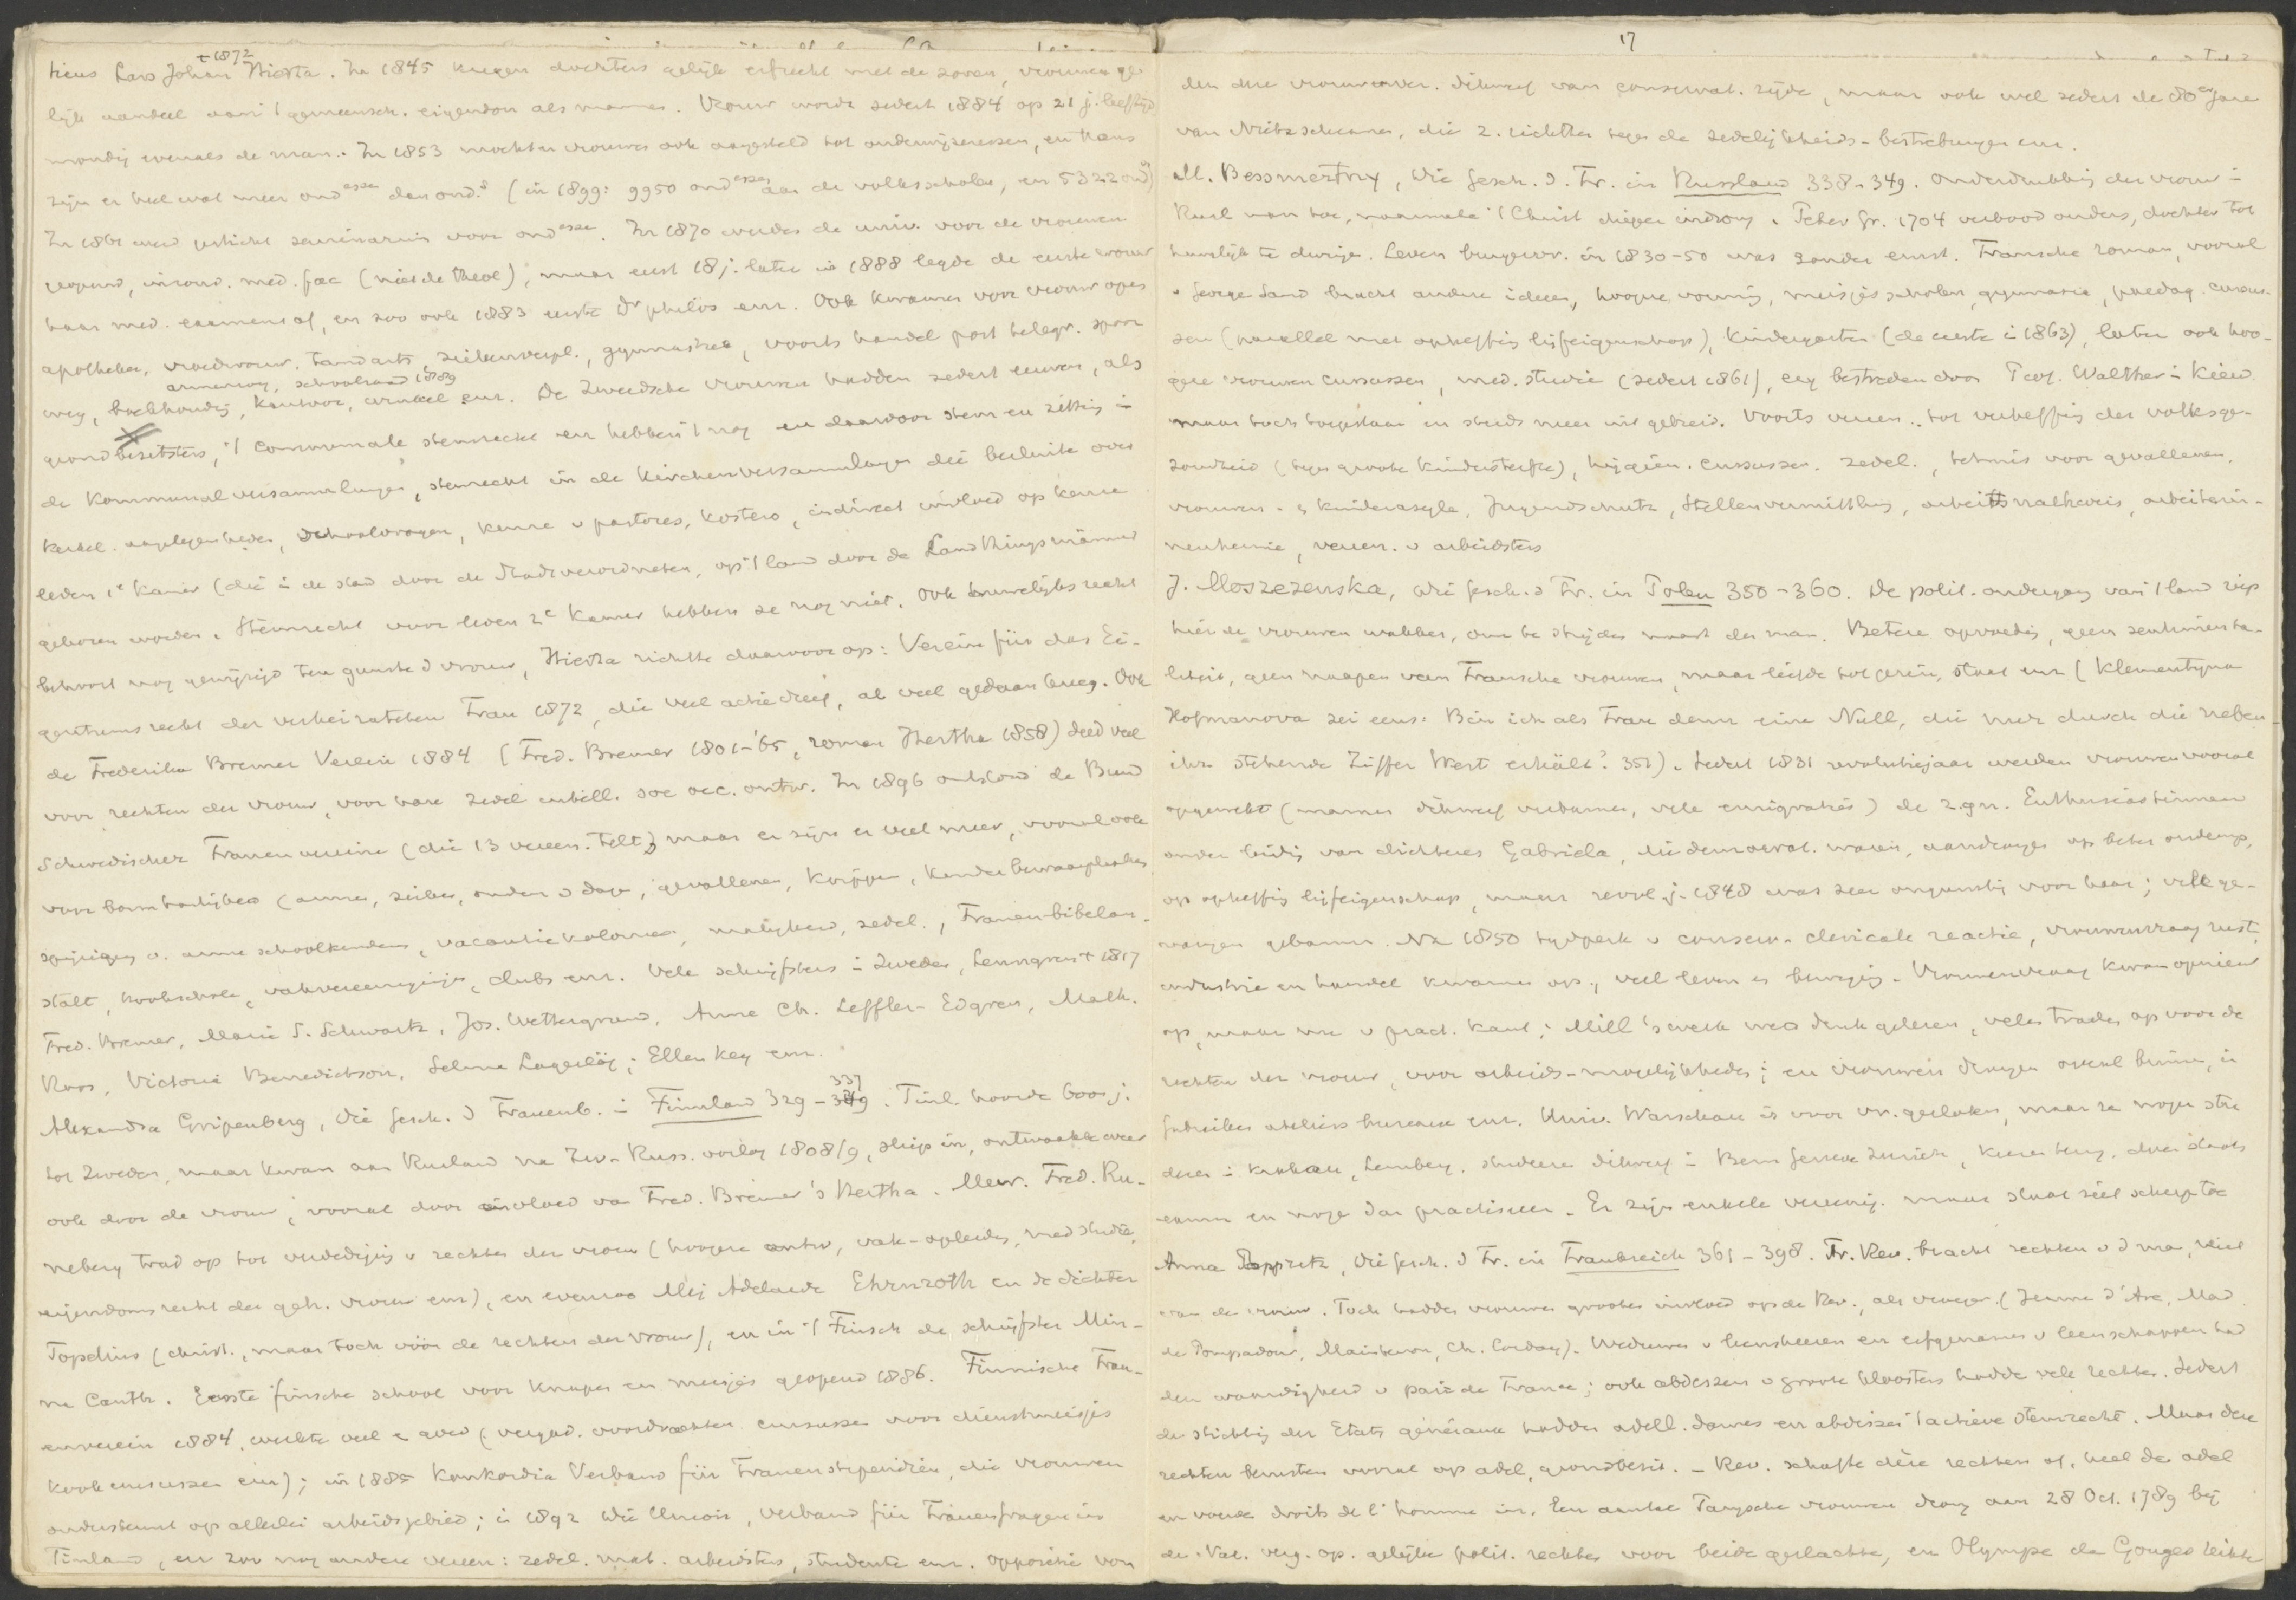 ticus Lars Johan Hierta. In 1845 kregen dochters gelijk erfrecht met de zoons, vrouwen ge-
+ 1872
lijk aandeel aan 't gemeensch. eigendom als mannen. Vrouw wordt sedert 1884 op 21 j. leeftijd
mondig evenals de man. In 1853 mochten vrouwen ook aangesteld tot onderwijzeressen, en thans
zijn er heel wat meer ond.essen dan ond.s (in 1899: 9950 ond.essen aan de volksscholen, en 5322 ond.s)
In 1861 werd gesticht seminarium voor ond.essen. In 1870 werden de univ. voor de vrouwen
geopend, inzond. med. fac (niet de theol), maar eerst 18 j. later in 1888 legde de eerste vrouw
haar med. examens af, en zoo ook 1883 eerste Dr philos enz. Ook kwamen voor vrouw open
apotheker, vroedvrouw, tandarts, ziekenverpl., gymnastiek, voorts handel post telegr. spoor
armenzorg, schoolraad 1889
weg, boekhouding, kantoor, winkel enz. De Zweedsche vrouwen hadden sedert eeuwen, als
grondbezitsters, 't communale stemrecht en hebben 't nog en daardoor stem en zitting in
de Kommunalversammlungen, stemrecht in de Kirchenversammlungen die besluiten over
kerkel. aangelegenheden, schoolvragen, keuze v pastores, kosters, indirect invloed op keuze
leden 1e Kamer (die in de stad door de Stadtverordneten, op 't land door de Landthingsmänner
gekozen worden. Stemrecht voor leden 2e Kamer hebben ze nog niet. Ook huwelijksrecht
behoort nog gewijzigd ten gunste d vrouw, Hierta richtte daarvoor op: Verein für das Ei-
gentumsrecht der verheirateten Frau 1872, die veel actie dreef, al veel gedaan kreeg. Ook
de Frederika Bremer Verein 1884 (Fred. Bremer 1801-'65, roman Hertha 1858) deed veel
voor rechten der vrouw, voor hare zedel intell. soc oec. ontw. In 1896 ontstond de Bund
Schwedischer Frauenvereine (die 13 vereen. telt) maar er zijn er veel meer, vooral ook
voor barmhartigheid (armen, zieken, ouden v dagen, gevallenen, krippen, kinderbewaarplaatsen
spijziging v. arme schoolkinderen, vacantiekolonies, matigheid, zedel., Frauen-bibelan-
stalt, kookschole, vakvereenigingen, clubs enz. Vele schrijfsters in Zweden, Lenngren + 1817
Fred. Bremer, Marie S. Schwartz, Jos. Wettergrund, Anne Ch. Leffler-Edgren, Math.
Roos, Victoria Benedictson, Selma Lagerlöf; Ellen Key enz.
Alexandra Gripenberg, Die Gesch. d Frauenb. in Finnland 329-337. Finl. hoorde 600 j.
tot Zweden, maar kwam aan Rusland na Zw.-Russ. oorlog 1808/9, sliep in, ontwaakte weer
ook door de vrouw, vooral door invloed van Fred. Bremer's Hertha. Mevr. Fred. Ru-
neberg trad op tot verdediging v rechten der vrouw (hoogere ontw, vak-opleiding, med studie,
eigendomsrecht der geh. vrouw enz), en evenzoo Mej Adelaide Ehrnroth en de dichter
Topelius (christ., maar toch vóór de rechten der vrouw), en in 't Finsch de schrijfster Min-
na Canth. Eerste finsche school voor knapen en meisjes geopend 1886. Finnische Frau-
enverein 1884, werkte veel en goed (vergad. voordrachten cursussen voor dienstmeisjes
kookcursussen enz); in 1885 Konkordia Verband für Frauenstipendien, die vrouwen
ondersteunt op allerlei arbeidsgebied; in 1892 die Union, Verband für Frauenfragen in
Finland, en zoo nog andere vereen: zedel. mat. arbeidsters, studenten enz. Oppositie von
17
den deze vrouwenver. dikwerf van conservat. zijde, maar ook wel sedert de 80er jaren
van Nietzscheanen, die z. richtten tegen de zedelijkheids-bestrebungen enz.
M. Bessmertny, Die Gesch. d. Fr. in Russland 338-349. Onderdrukking der vrouw in
Rusl nam toe, naarmate 't Christ dieper indrong. Peter Gr. 1704 verbood ouders, dochters tot
huwelijk te dwingen. Leven burgervr. in 1830-50 was zonder ernst. Fransche roman, vooral
v George Sand bracht andere ideeën, hoogere vorming, meisjesscholen, gymnasia, paedag. cursus-
sen (parallel met opheffing lijfeigenschap), Kindergarten (de eerste in 1863), later ook hoo-
gere vrouwencursussen, med. studie (sedert 1861), erg bestreden door Prof. Walther in Kiew
maar toch toegestaan en steeds meer uitgebreid. Voorts vereen. tot verheffing der volksge-
zondheid (tegen groote kindersterfte), hygiën. cursussen. zedel., tehuis voor gevallenen,
vrouwen- en kinderasyle, Jugendschutz, Stellenvermittlung, arbeitsnachweis, arbeiterin-
nenheime, vereen. v arbeidsters
J. Moszczenska, Die Gesch. d Fr. in Polen 350-360. De polit. ondergang van 't land riep
hier de vrouwen wakker, om te strijden naast den man. Betere opvoeding, geen sentimenta-
liteit, geen naapen van Fransche vrouwen, maar liefde tot gezin, staat enz (Klementyna
Hofmanova zei eens: Bin ich als Frau denn eine Null, die nur durch die neben
ihr stehende Ziffer Wert erhält? 351). Sedert 1831 revolutiejaar werden vrouwen vooral
opgewekt (mannen dikwerf verbannen, vele emigratiës) de z.gn. Enthusiastinnen
onder leiding van dichteres Gabriela, die democrat. waren, aandrongen op beter onderwijs,
op opheffing lijfeigenschap, maar revol.j. 1848 was zeer ongunstig voor haar; vele ge-
vangen gebannen. Na 1850 tijdperk v conserv. clericale reactie, vrouwenvraag rust,
industrie en handel kwamen op, veel leven en beweging. Vrouwenvraag kwam opnieuw
op, maar nu v pract. kant; Mill's werk werd druk gelezen, velen traden op voor de
rechten der vrouw, voor arbeids-mogelijkheden; en vrouwen drongen overal binnen, in
fabrieken ateliers bureaux enz. Univ. Warschau is voor vr. gesloten, maar ze mogen stu
deeren in Krakau, Lemberg, studeeren dikwerf in Bern Genève Zürich, keeren terug, doen staats
examen en mogen dan practiseeren. Er zijn enkele vereenig. maar staat ziet scherp toe
Anna Pappritz, Die Gesch. d Fr. in Frankreich 361-398. Fr. Rev. bracht rechten v d man, niet
van de vrouw. Toch hadden vrouwen grooten invloed op de Rev., als vroeger (Jeanne d'Arc, Mad
de Pompadour, Maintenon, Ch. Corday). Weduwen v leensheeren en erfgenamen v leenschappen had
den waardigheid v pair de France; ook abdissen v groote kloosters hadden vele rechten. Sedert
de stichting der Etats généraux hadden adell. dames en abdissen 't actieve stemrecht. Maar deze
rechten berustten vooral op adel, grondbezit. - Rev. schafte deze rechten af, heel de adel
en voerde droits de l'homme in. Een aantal Parijsche vrouwen drong aan 28 Oct. 1789 bij
de Nat. verg. op gelijke polit. rechten voor beide geslachten, en Olympe de Gouges richtte